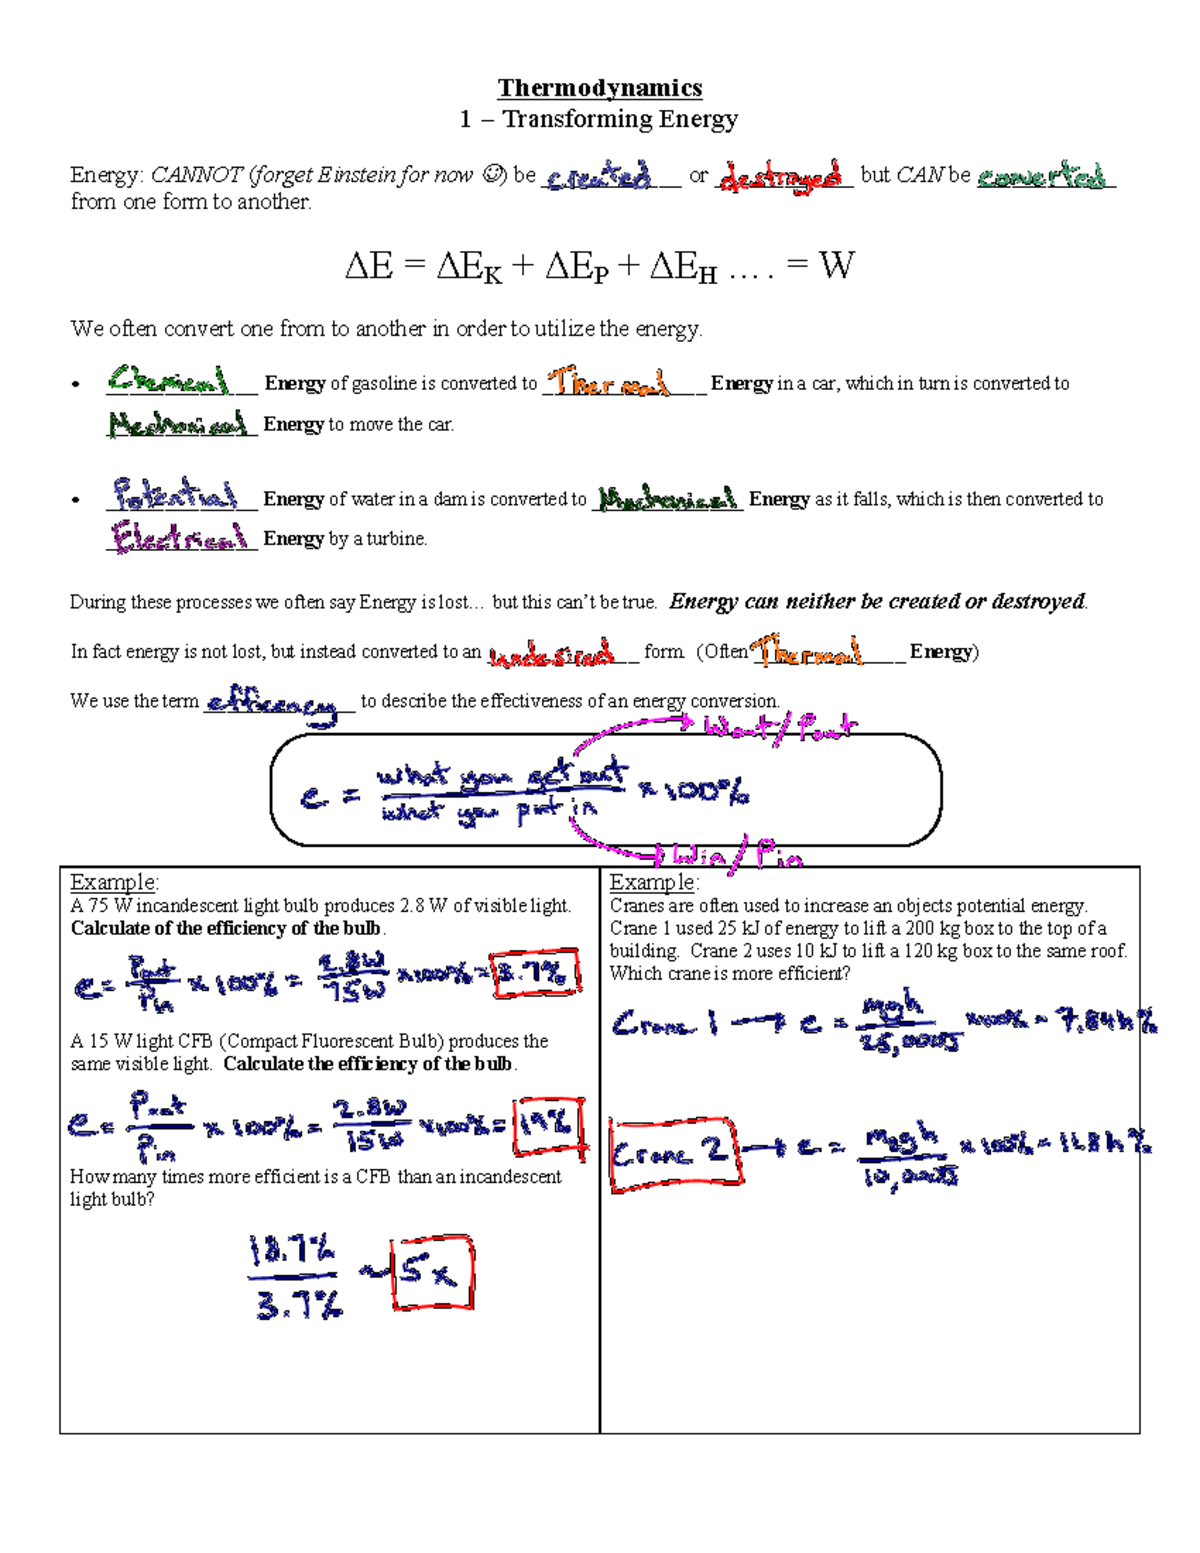 Thermodynamics
1 – Transforming Energy
Energy: CANNOT (forget Einstein for now ☺) be created or destroyed but CAN be converted
from one form to another.
ΔE = ΔE_K + ΔE_P + ΔE_H …. = W
We often convert one from to another in order to utilize the energy.
• Chemical Energy of gasoline is converted to Thermal Energy in a car, which in turn is converted to
Mechanical Energy to move the car.
• Potential Energy of water in a dam is converted to Mechanical Energy as it falls, which is then converted to
Electrical Energy by a turbine.
During these processes we often say Energy is lost… but this can't be true. Energy can neither be created or destroyed.
In fact energy is not lost, but instead converted to an undesired form. (Often Thermal Energy)
We use the term efficency to describe the effectiveness of an energy conversion.
Wout/Pout
e = what you get out / what you put in x 100%
Win/Pin
Example:
A 75 W incandescent light bulb produces 2.8 W of visible light.
Calculate of the efficiency of the bulb.
e = Pout/Pin x 100% = 2.8W/75W x100% = 3.7%
A 15 W light CFB (Compact Fluorescent Bulb) produces the
same visible light. Calculate the efficiency of the bulb.
e = Pout/Pin x 100% = 2.8W/15W x100% = 19%
How many times more efficient is a CFB than an incandescent
light bulb?
18.7%/3.7% ~ 5x
Example:
Cranes are often used to increase an objects potential energy.
Crane 1 used 25 kJ of energy to lift a 200 kg box to the top of a
building. Crane 2 uses 10 kJ to lift a 120 kg box to the same roof.
Which crane is more efficient?
Crane 1 → e = mgh/25,000J x100% = 7.84h%
Crane 2 → e = mgh/10,000J x 100% = 11.8h%